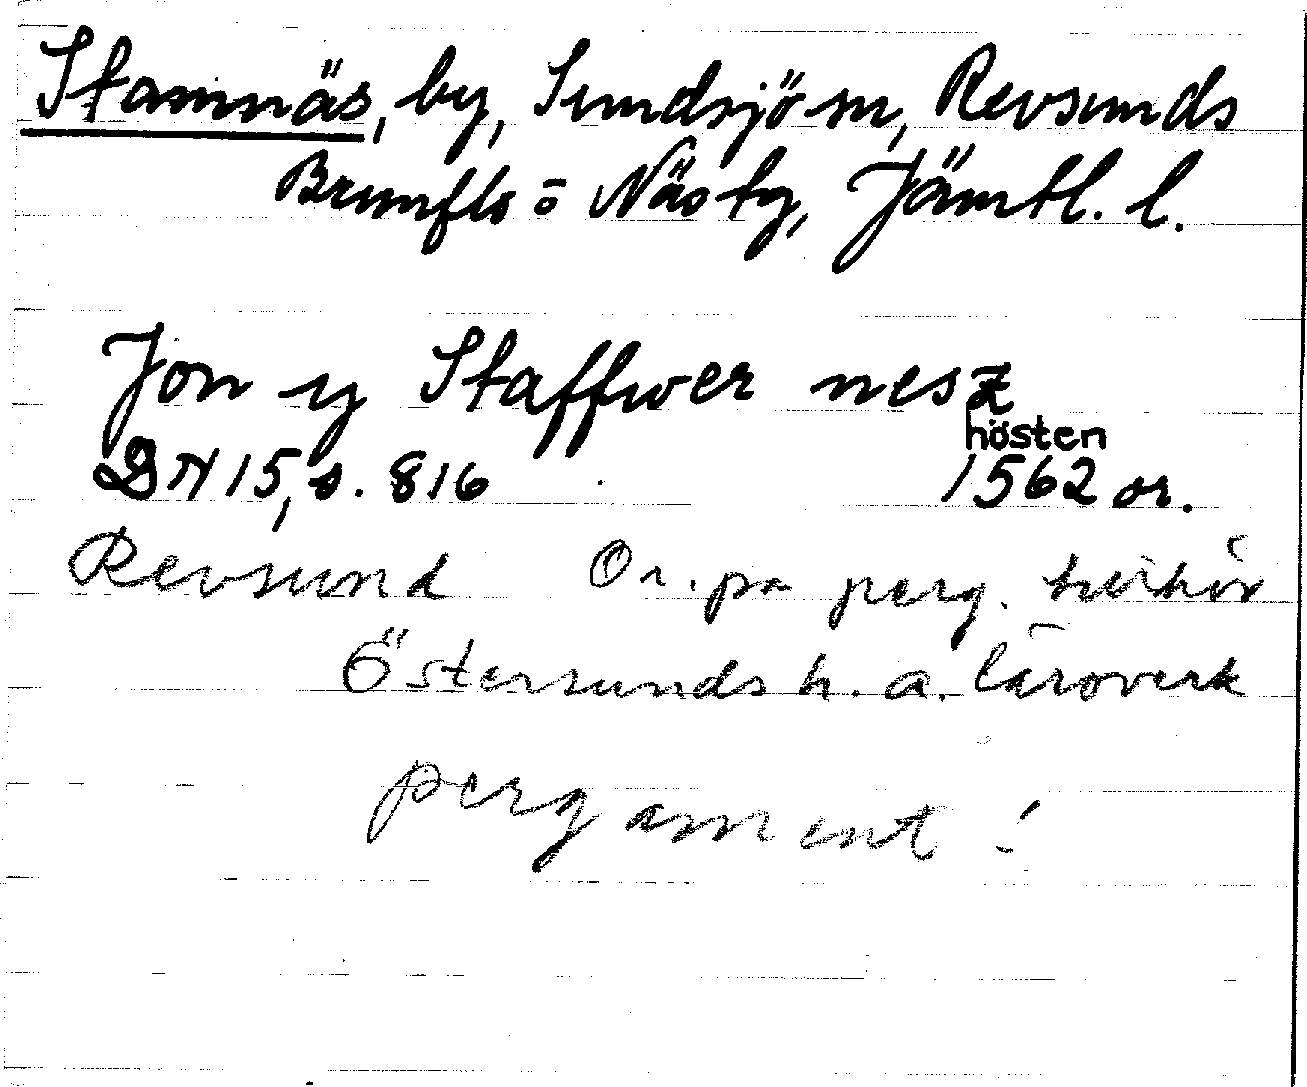 Stamnäs, by, Sundsjö sn, Revsunds
Brunflo ō Näs tg, Jämtl. l.
Jon y Staffwer nesz
hösten
DN 15, s. 816 1562 or.
Revsund Or. på perg. tillhör
Östersunds h. a. läroverk
pergament!